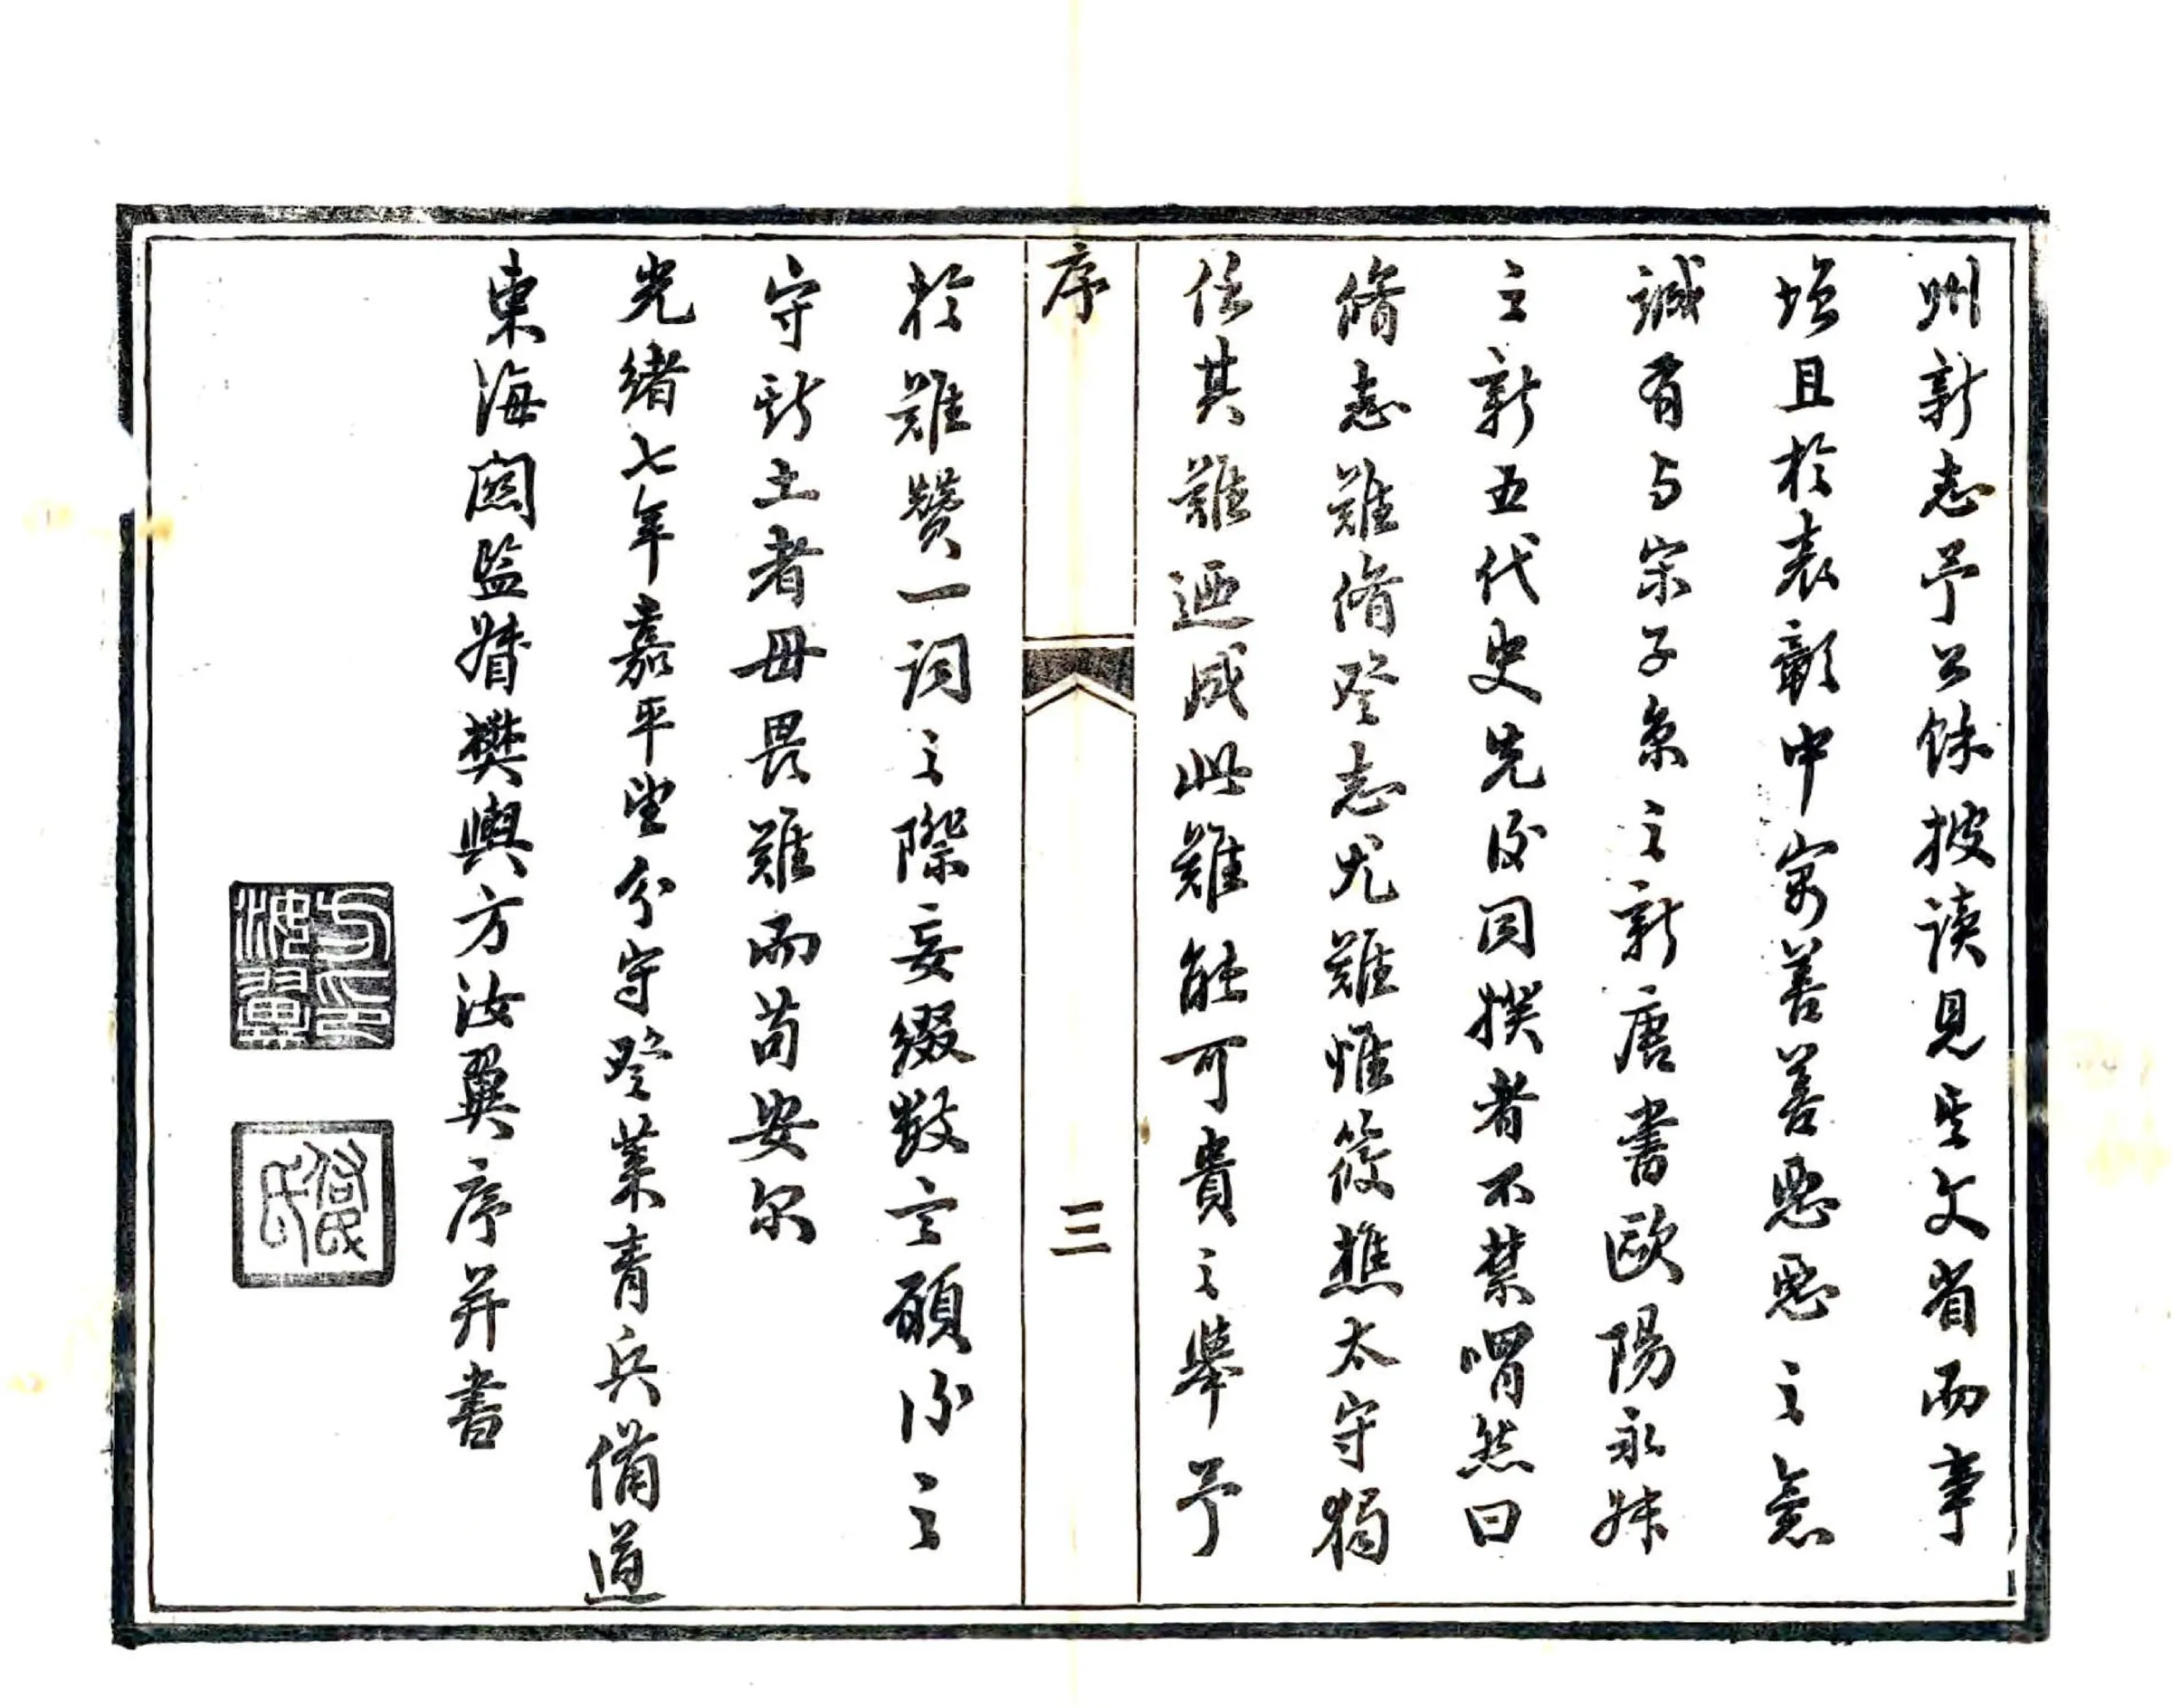 州新志予公餘披讀見其文省而事
增且於表彰中寓善善惡惡之意
誠有与宋子京之新唐書歐陽永叔
之新五代史先後同撰者不禁喟然曰
脩志難脩登志尤難惟筱樵太守獨
任其難迺成此難能可貴之舉予
序
三
於難贊一詞之際妄綴數言願後之
守斯土者毋畏難而苟安尔
光緒七年嘉平望分守登萊青兵備道
東海關監督樊輿方汝翼序并書
方汝翼印
氏